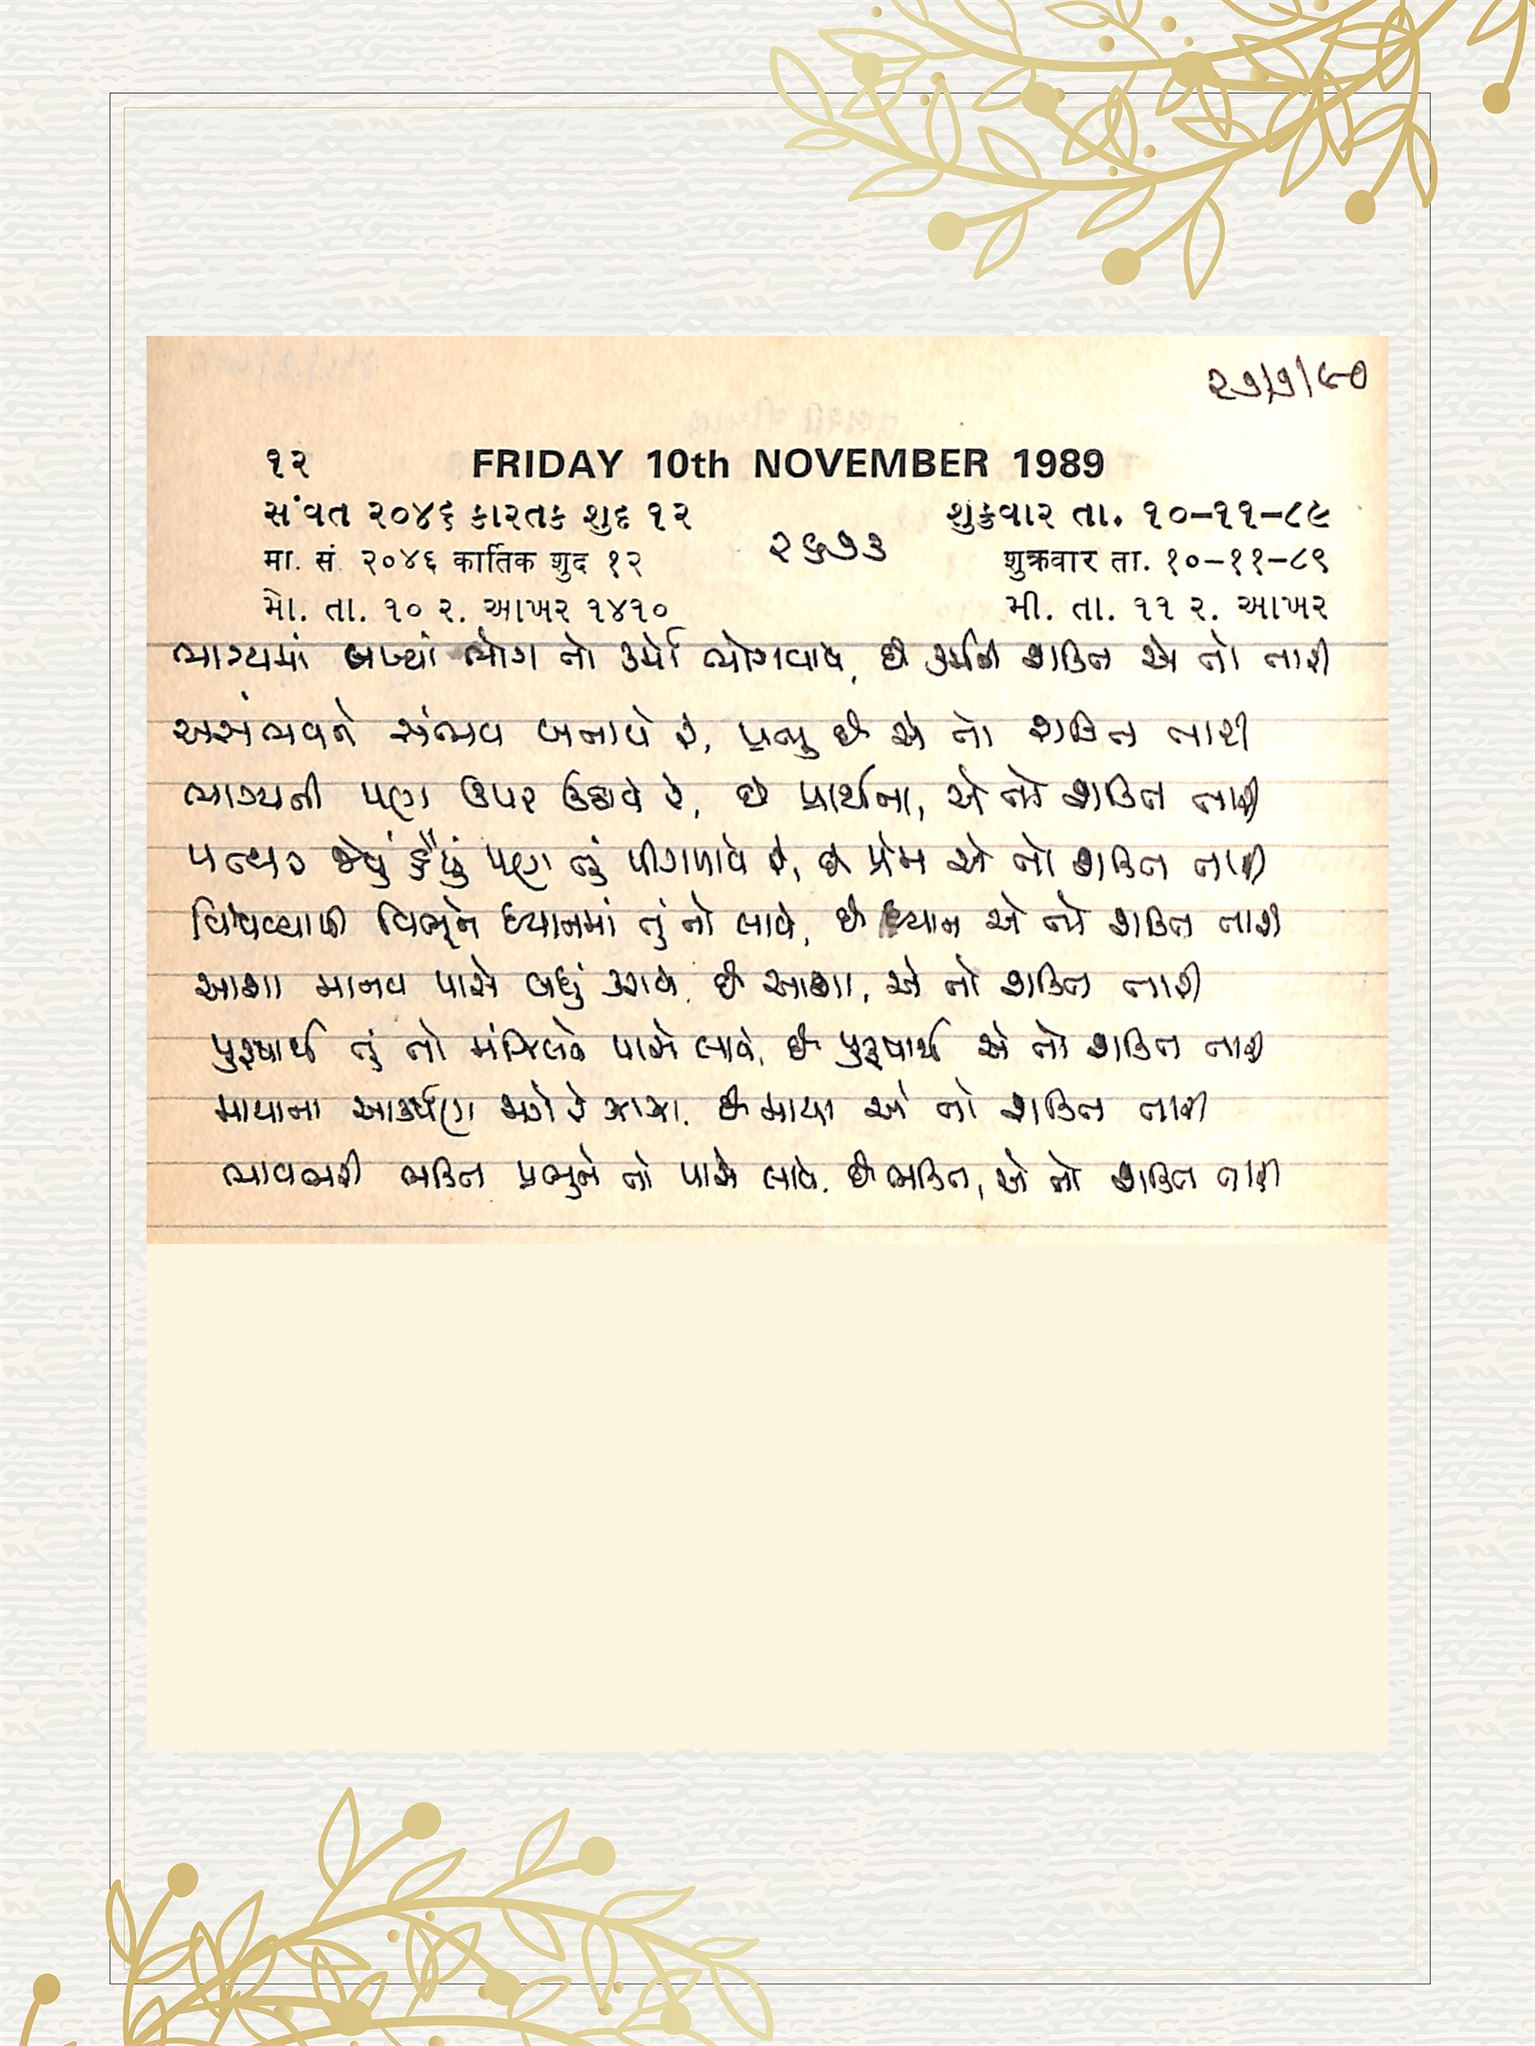 ૨૭/૭/૯૦
૧૨ FRIDAY 10th NOVEMBER 1989
સંવત ૨૦૪૬ કારતક શુદ ૧૨ શુક્રવાર તા. ૧૦–૧૧–૮૯
मा. सं. २०४६ कार्तिक शुद १२ शुक्रवार ता. १०–११–८९
૨૬૭૩
મો. તા. ૧૦ ર. આખર ૧૪૧૦ મી. તા. ૧૧ ર. આખર
ભાગ્યમાં લખ્યાં ભોગ તો કર્મો ભોગવાવે, છે કર્મની શક્તિ એ તો તારી
અસંભવને સંભવ બનાવે રે, પ્રભુ છે એ તો શક્તિ તારી
ભાગ્યની પણ ઉપર ઉઠાવે રે, છે પ્રાર્થના, એ તો શક્તિ તારી
પત્થર જેવું હૈયું પણ તું પીગળાવે રે, છે પ્રેમ એ તો શક્તિ તારી
વિશ્વવ્યાપી વિભુને ધ્યાનમાં તું તો લાવે, છે ધ્યાન એ તો શક્તિ તારી
આશા માનવ પાસે બધું કરાવે. છે આશા, એ તો શક્તિ તારી
પુરુષાર્થ તું તો મંઝિલને પાસે લાવે, છે પુરુષાર્થ એ તો શક્તિ તારી
માયાના આકર્ષણ જાગે રે ઝાઝા. છે માયા એ તો શક્તિ તારી
ભાવભરી ભક્તિ પ્રભુને તો પાસે લાવે. છે ભક્તિ, એ તો શક્તિ તારી